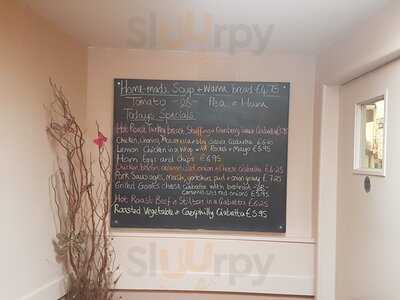 sluurpy
Home-made Soup + Warm bread £4.75
Tomato -or- Pea + Ham
Todays Specials
Hot Roast Turkey breast, Stuffing + Cranberry sauce Ciabatta
Chicken, Mozzarella + BBQ sauce Ciabatta
Lemon Chicken in a Wrap + Mayo £5.95
Ham Eggs and chips £6.95
Chicken, bacon, caramelised onion + cheese Ciabatta £6.25
Pork Sausages, mash, yorkshire pud + onion gravy £7.25
Grilled Goats cheese Ciabatta with beetroot -or-
caramelised red onions £5.95
Hot Roast Beef + Stilton in a Ciabatta £6.25
Roasted Vegetable + Caerphilly Ciabatta £5.95
sluurpy